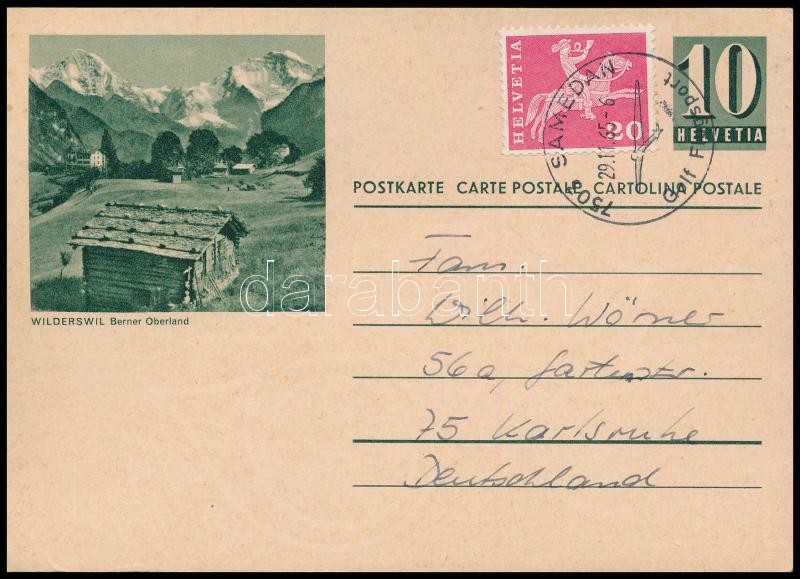 HELVETIA
20
7503 SAMEDAN
29.11.65-6
Golf Flugsport
10
HELVETIA
POSTKARTE CARTE POSTALE CARTOLINA POSTALE
WILDERSWIL Berner Oberland
Fam.
Wilh. Wörner
56a, Gartenstr.
75 Karlsruhe
Deutschland
darabanth